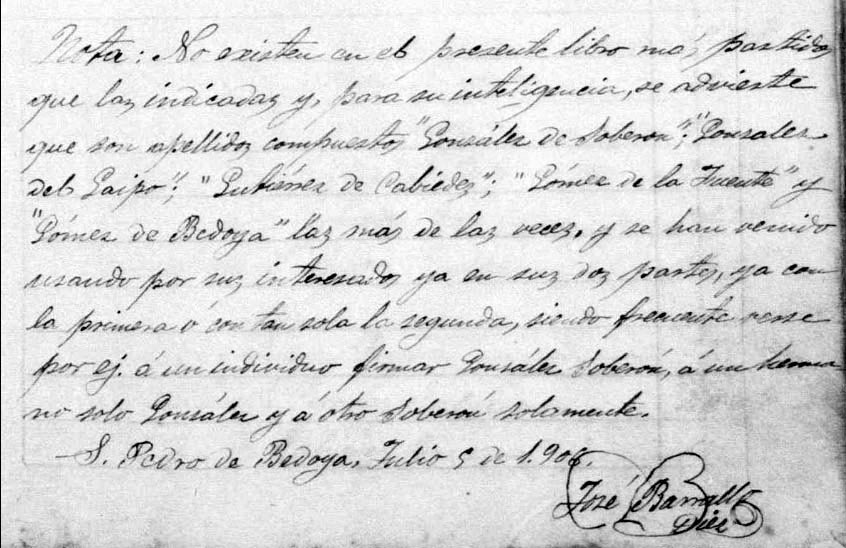 Nota: No existen en el presente libro más partidas
que las indicadas y, para su inteligencia, se advierte
que son apellidos compuestos "González de Soberón"; "Gonzalez
del Gaipo"; "Gutiérrez de Cabiedes"; "Gómez de la Fuente" y
"Gómez de Bedoya" las más de las veces, y se han venido
usando por sus interesados ya en sus dos partes, ya con
la primera ó con tan sola la segunda, siendo frecuente verse
por ej. á un individuo firmar González Soberón, á un herma
no solo González y á otro Soberón solamente.
S. Pedro de Bedoya, Julio 5 de 1.906.
José Barrallo
Diez